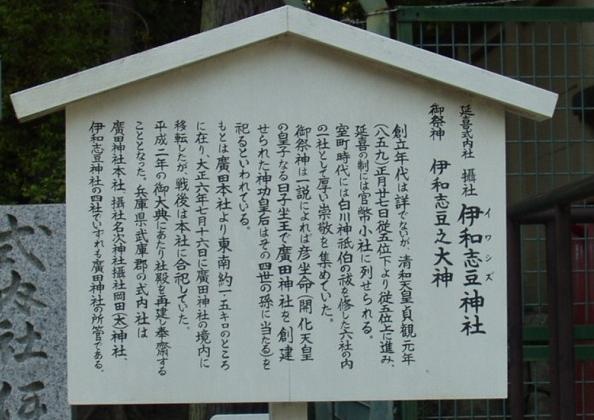 延喜式内社 摂社 伊和志豆神社
イワシズ
御祭神 伊和志豆之大神
創立年代は詳でないが、清和天皇貞観元年
(八五九)正月廿七日従五位下より従五位上に進み、
延喜の制には官幣小社に列せられる。
室町時代には白川神祇伯の祓を修した六社の内
の一社として厚い崇敬を集めていた。
御祭神は一説によれば彦坐命(開化天皇
の皇子なる日子坐王で廣田神社を創建
せられた神功皇后はその四世の孫に当たる)を
祀るといわれている。
もとは廣田本社より東南約一・五キロのところ
に在り大正六年七月十六日に廣田神社の境内に
移転したが、戦後は本社に合祀していた。
平成二年の御大典にあたり社殿を再建し奉斎する
こととなった。兵庫県武庫郡の式内社は
廣田神社本社、摂社名次神社摂社岡田(太)神社、
伊和志豆神社の四社でいずれも廣田神社の所管である。
式内社